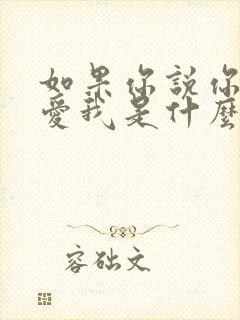 如果你說你
愛我是什麼
容础文